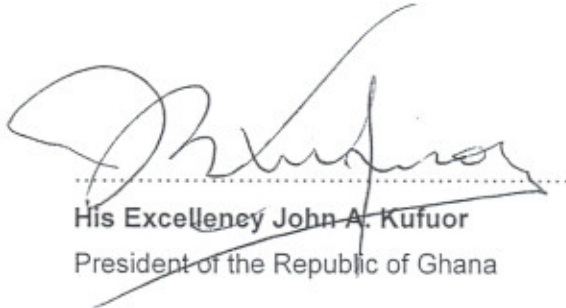 His Excellency John A. Kufuor
President of the Republic of Ghana